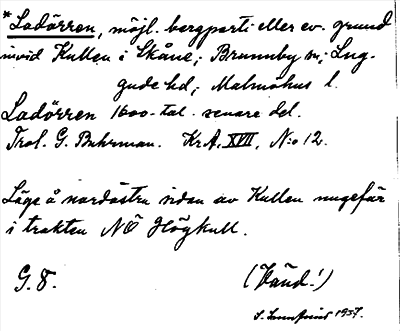 *Ladörren, möjl. bergparti eller ev. grund
invid Kullen i Skåne; Brunnby sn; Lug-
gude hd, Malmöhus l.
Ladörren 1600-tal. senare del.
Trol. G. Buhrman. Kr.A. XVII, N:o 12.
Läge å nordöstra sidan av Kullen ungefär
i trakten NÖ Högkull.
G. 8. (Vänd!)
S. 1937.